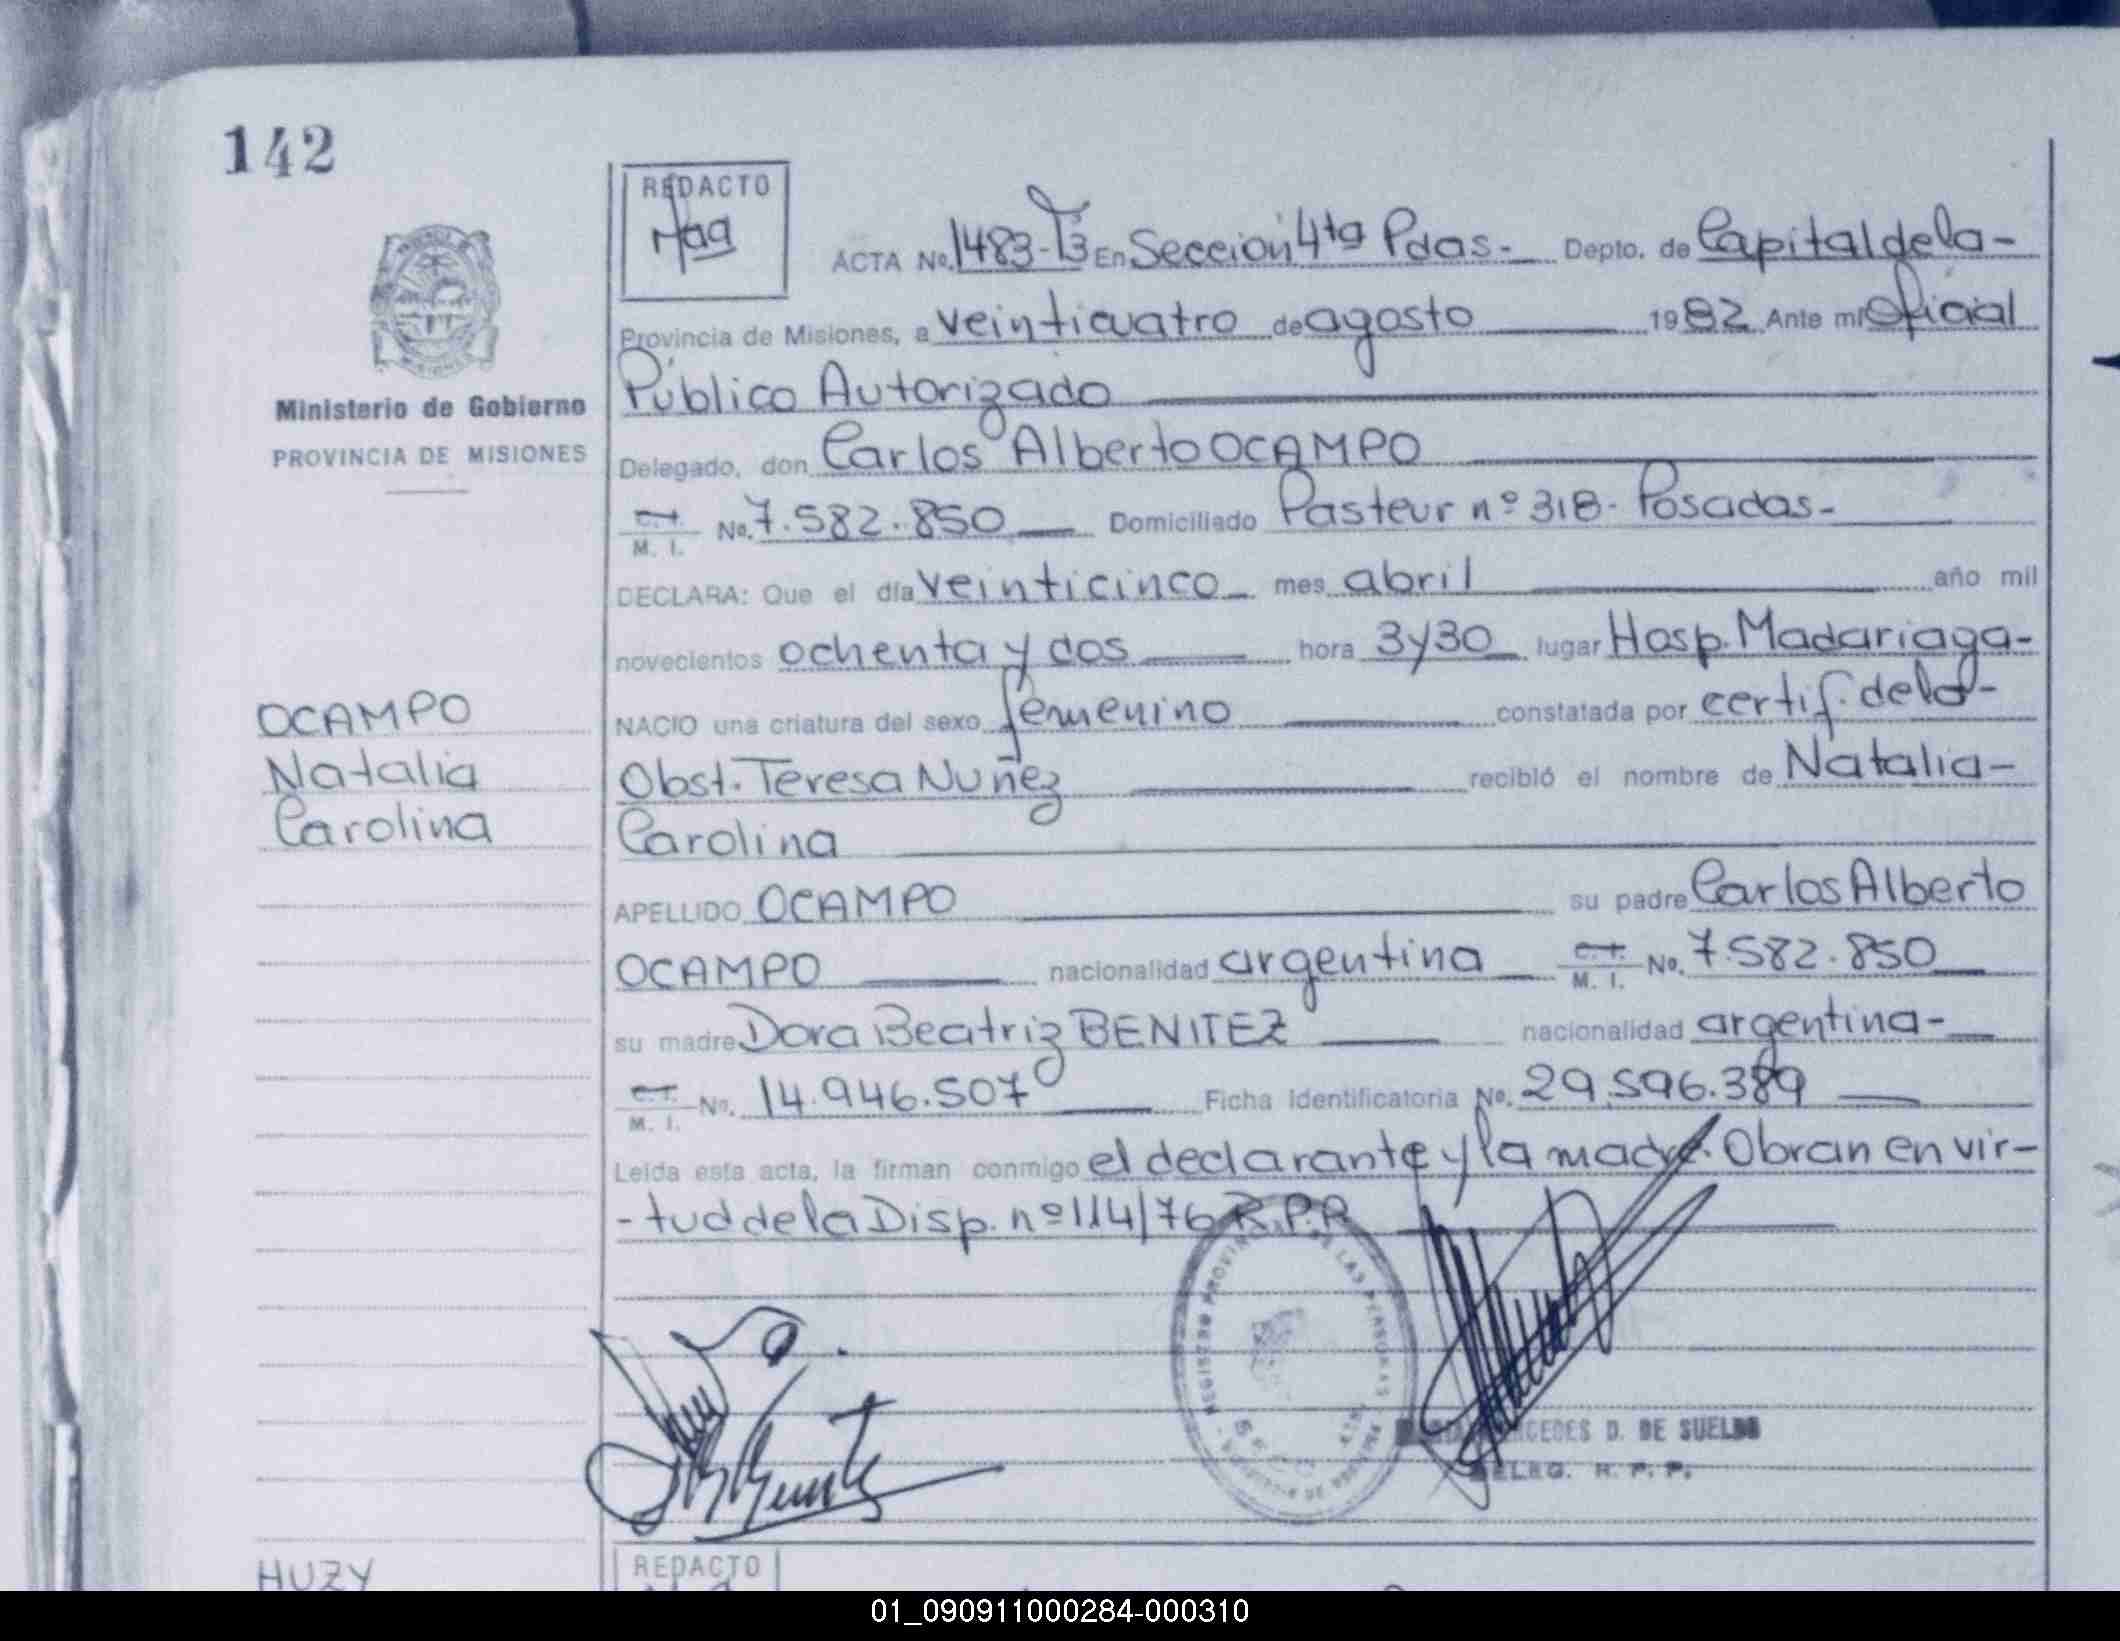 142
REDACTO
ACTA No. 1483-T3 En Sección 4ta Pdas.- Depto. de Capital de la-
Provincia de Misiones, a veinticuatro de agosto 1982 Ante mí Oficial
Ministerio de Gobierno
PROVINCIA DE MISIONES
Público Autorizado
Delegado, don Carlos Alberto OCAMPO
C.I. M. I. No. 7.582.850 Domiciliado Pasteur nº 318- Posadas-
DECLARA: Que el día veinticinco mes abril año mil
novecientos ochenta y dos hora 3y30 lugar Hosp. Madariaga-
OCAMPO
Natalia
Carolina
NACIO una criatura del sexo femenino constatada por certif. de la-
Obst. Teresa Nuñez recibió el nombre de Natalia-
Carolina
APELLIDO OCAMPO su padre Carlos Alberto
OCAMPO nacionalidad argentina C.I. M. I. No. 7.582.850
su madre Dora Beatriz BENITEZ nacionalidad argentina-
C.I. M. I. No. 14.946.507 Ficha Identificatoria No. 29.596.389
Leída esta acta, la firman conmigo el declarante y la madre. Obran en vir-
-tud de la Disp. nº 114/76 R.P.P.
REGISTRO PROVINCIAL DE LAS PERSONAS
MERCEDES D. DE SUELDO
DELEG. R. P. P.
HUZY
REDACTO
01_090911000284-000310